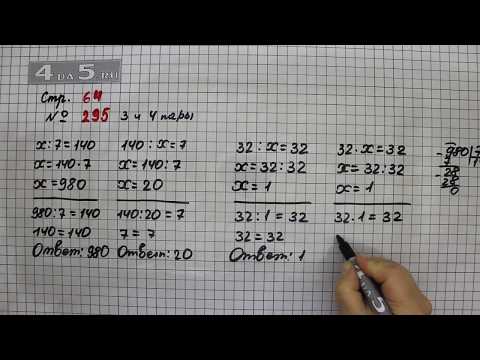 4 DA 5.RU
Стр. 64
№ 295 3 и 4 пары
x : 7 = 140
x = 140 · 7
x = 980
980 : 7 = 140
140 = 140
Ответ: 980
140 : x = 7
x = 140 : 7
x = 20
140 : 20 = 7
7 = 7
Ответ: 20
32 : x = 32
x = 32 : 32
x = 1
32 : 1 = 32
32 = 32
Ответ: 1
32 · x = 32
x = 32 : 32
x = 1
32 · 1 = 32
980 7
7
28
28
0